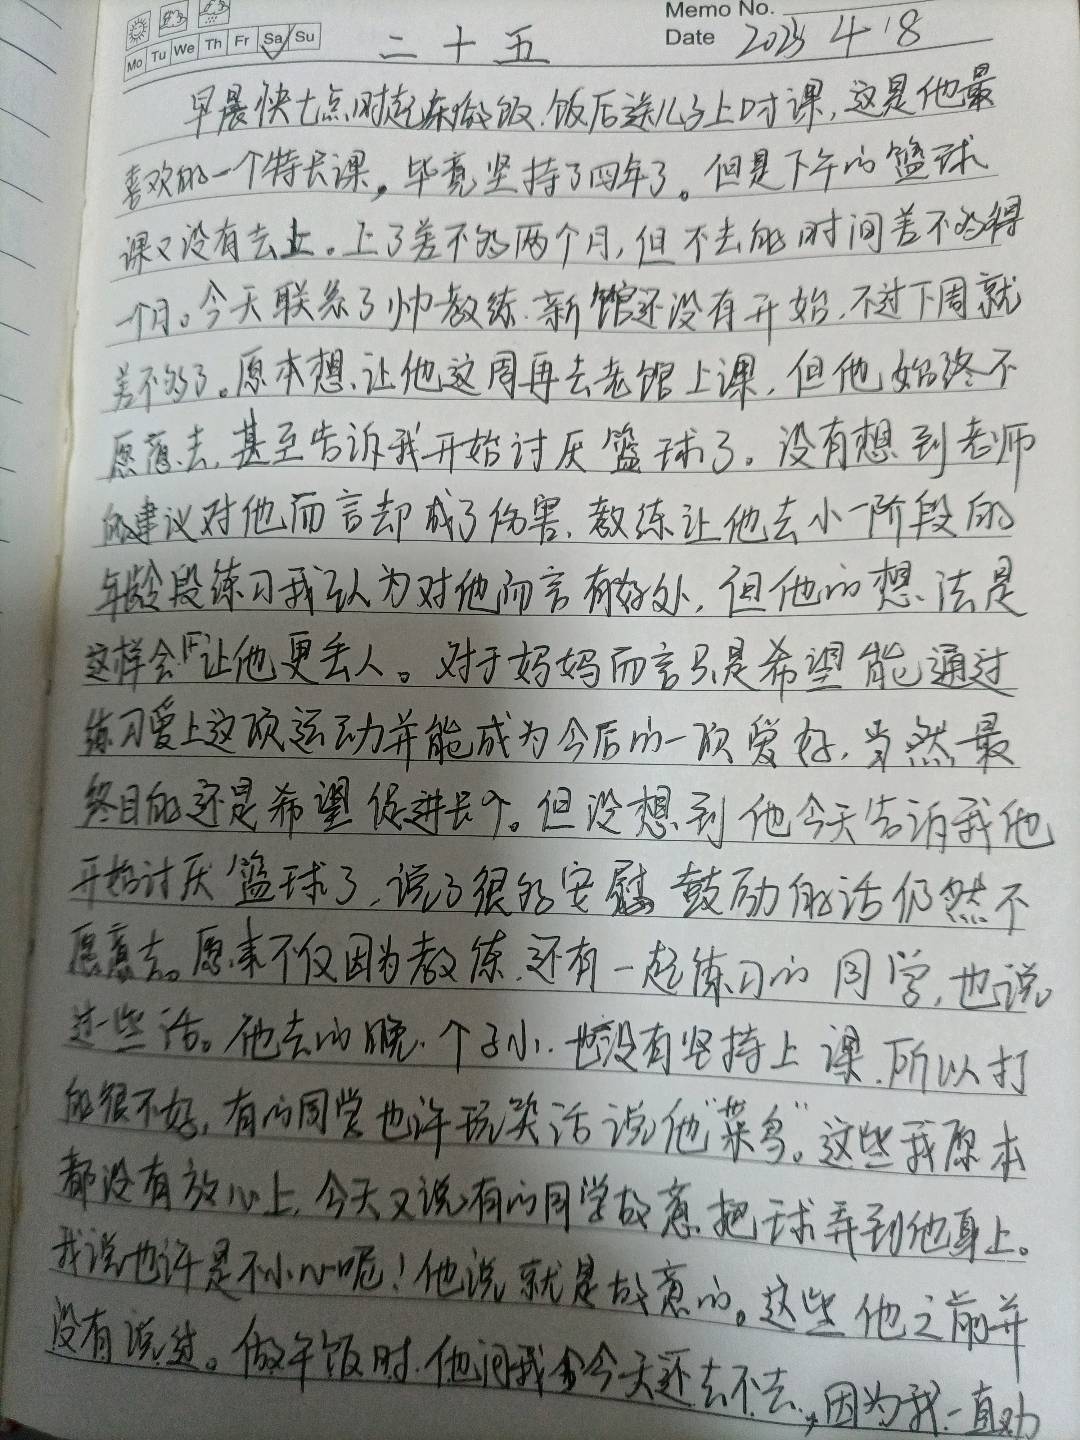 Memo No.
Mo Tu We Th Fr Sa Su
二十五
Date 2023 4 8
早晨快七点时起床做饭.饭后送儿子上吋课,这是他最
喜欢的一个特长课,毕竟坚持了四年了。但是下午的篮球
课又没有去上。上了差不多两个月,但不去的时间差不多得
一个月。今天联系了帅教练.新馆还没有开始,不过下周就
差不多了。原本想.让他这周再去老馆上课,但他始终不
愿意去,甚至告诉我开始讨厌篮球了。没有想到老师
的建议对他而言却成了伤害,教练让他去小一阶段的
年龄段练习我认为对他而言有好处,但他的想法是
这样会让他更丢人。对于妈妈而言只是希望能通过
练习爱上这项运动并能成为今后的一项爱好,当然最
终目的还是希望促进长个。但没想到他今天告诉我他
开始讨厌篮球了,说了很多安慰鼓励的话仍然不
愿意去。原来不仅因为教练.还有一起练习的同学,也说
过一些话。他去的晚.个子小.也没有坚持上课.所以打
的很不好,有的同学也许玩笑话说他“菜鸟”。这些我原本
都没有放心上,今天又说有的同学故意把球弄到他身上。
我说也许是不小心呢!他说就是故意的。这些他之前并
没有说过。做午饭时.他问我今天还去不去,因为我一直劝